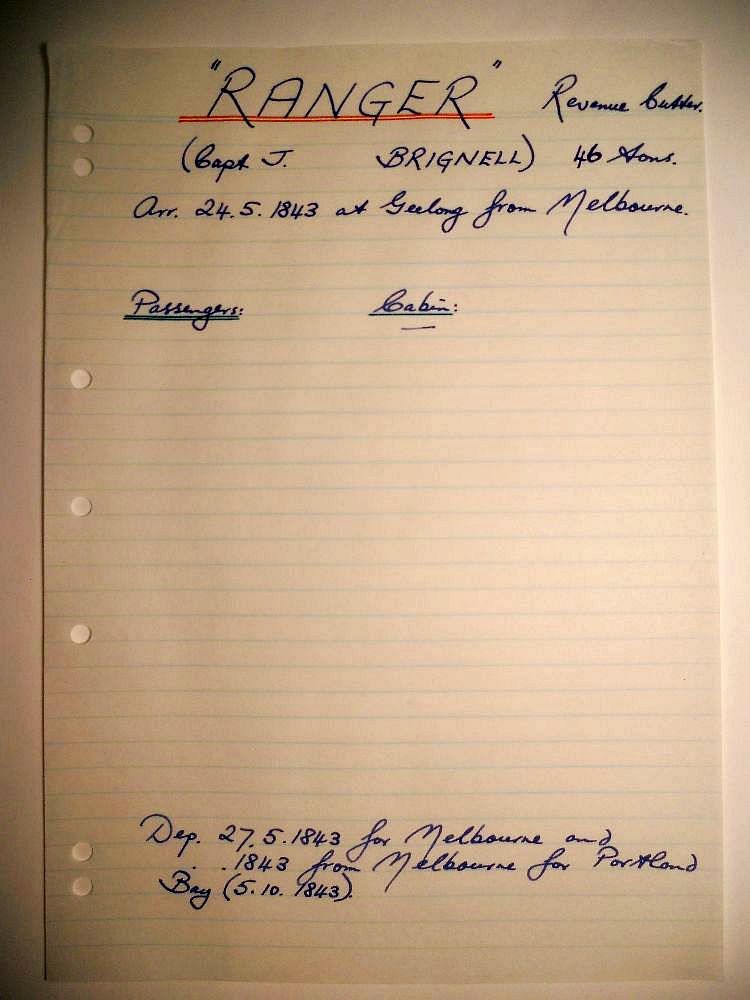 "RANGER" Revenue Cutter.
(Capt J. BRIGNELL) 46 tons.
Arr. 24.5.1843 at Geelong from Melbourne.
Passengers: Cabin:
—
Dep. 27.5.1843 for Melbourne and
. .1843 from Melbourne for Portland
Bay (5.10.1843).